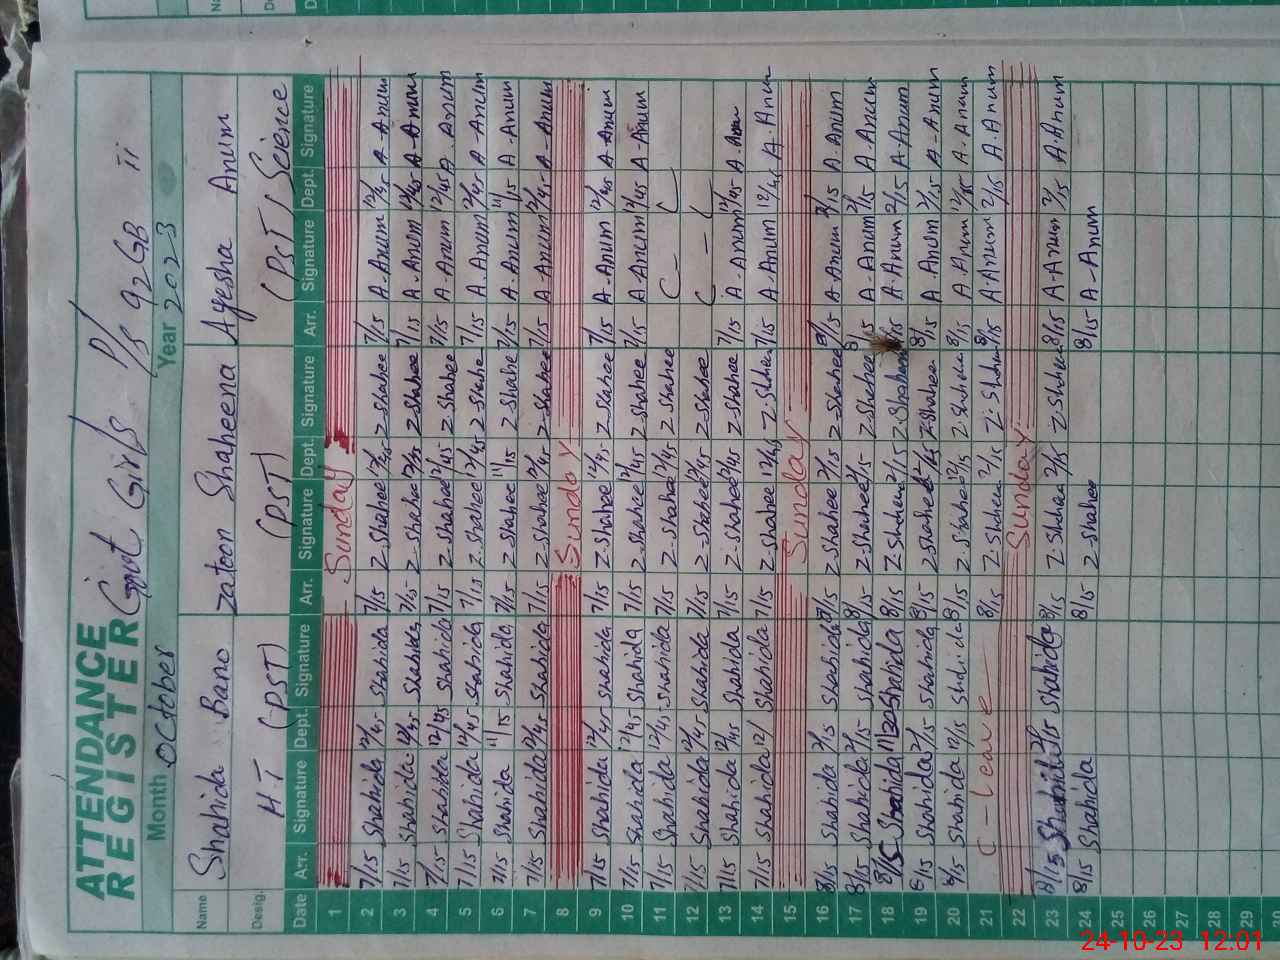 ATTENDANCE REGISTER
Govt Girls P/S 92GB ii
Month October Year 2023
Name Shahida Bano Zatoon Shaheena Ayesha Anum
Desig. H.T (PST) (PST) (PST, Science
Date Arr. Signature Dept. Signature Arr. Signature Dept. Signature Arr. Signature Dept. Signature
1 Sunday
2 7/15 Shahida 12/45 Shahida 7/15 Z-Shahee 12/45 Z-Shahee 7/15 A-Anum 12/45 A-Anum
3 7/15 Shahida 12/45 Shahida 7/15 Z-Shahee 12/45 Z-Shahee 7/15 A-Anum 12/45 A-Anum
4 7/15 Shahida 12/45 Shahida 7/15 Z-Shahee 12/45 Z-Shahee 7/15 A-Anum 12/45 A-Anum
5 7/15 Shahida 12/45 Shahida 7/15 Z-Shahee 12/45 Z-Shahee 7/15 A-Anum 12/45 A-Anum
6 7/15 Shahida 11/15 Shahida 7/15 Z-Shahee 11/15 Z-Shahee 7/15 A-Anum 11/15 A-Anum
7 7/15 Shahida 12/45 Shahida 7/15 Z-Shahee 12/45 Z-Shahee 7/15 A-Anum 12/45 A-Anum
8 Sunday
9 7/15 Shahida 12/45 Shahida 7/15 Z-Shahee 12/45 Z-Shahee 7/15 A-Anum 12/45 A-Anum
10 7/15 Shahida 12/45 Shahida 7/15 Z-Shahee 12/45 Z-Shahee 7/15 A-Anum 12/45 A-Anum
11 7/15 Shahida 12/45 Shahida 7/15 Z-Shahee 12/45 Z-Shahee C - L
12 7/15 Shahida 12/45 Shahida 7/15 Z-Shahee 12/45 Z-Shahee C - L
13 7/15 Shahida 12/45 Shahida 7/15 Z-Shahee 12/45 Z-Shahee 7/15 A-Anum 12/45 A-Anum
14 7/15 Shahida 12/ Shahida 7/15 Z-Shahee 12/45 Z-Shahee 7/15 A-Anum 12/45 A-Anum
15 Sunday
16 8/15 Shahida 2/15 Shahida 8/15 Z-Shahee 2/15 Z-Shahee 8/15 A-Anum 2/15 A-Anum
17 8/15 Shahida 2/15 Shahida 8/15 Z-Shahee 2/15 Z-Shahee 8/15 A-Anum 2/15 A-Anum
18 8/15 Shahida 11/30 Shahida 8/15 Z-Shahee 2/15 Z-Shahee 8/15 A-Anum 2/15 A-Anum
19 8/15 Shahida 2/15 Shahida 8/15 Z-Shahee Z-Shahee 8/15 A Anum 2/15 A-Anum
20 8/15 Shahida 12/15 Shahida 8/15 Z-Shahee 12/15 Z-Shahee 8/15 A-Anum A-Anum
21 C-leave 8/15 Z-Shahee 2/15 Z-Shahee 8/15 A-Anum 2/15 A-Anum
22 Sunday
23 8/15 Shahida 2/15 Shahida 8/15 Z-Shahee 2/15 Z-Shahee 8/15 A-Anum 2/15 A-Anum
24 8/15 Shahida 8/15 Z-Shahee 8/15 A-Anum
25
26
27
28
29
24-10-23 12:01